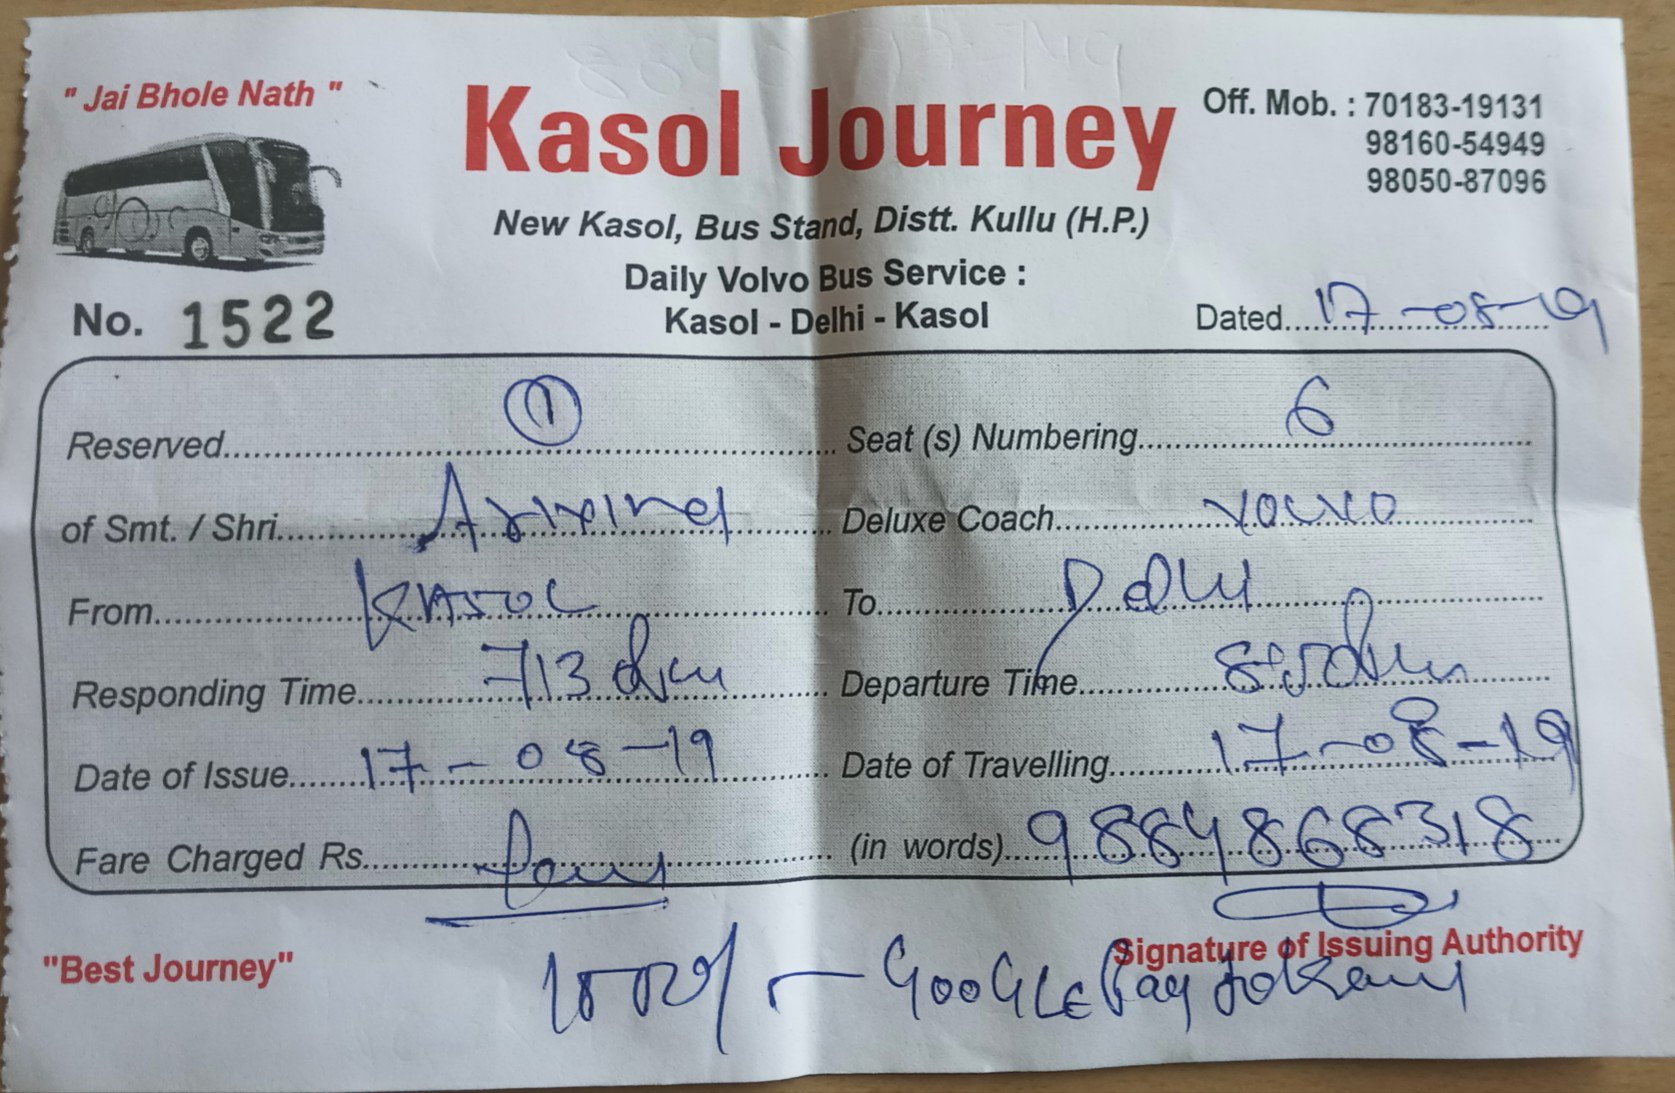 " Jai Bhole Nath "
Kasol Journey
Off. Mob. : 70183-19131
98160-54949
98050-87096
New Kasol, Bus Stand, Distt. Kullu (H.P.)
Daily Volvo Bus Service :
Kasol - Delhi - Kasol
No. 1522
Dated 17-08-19
Reserved 1 Seat (s) Numbering 6
of Smt. / Shri Deluxe Coach Volvo
From KASOL To Delhi
Responding Time Departure Time
Date of Issue 17-08-19 Date of Travelling 17-08-19
Fare Charged Rs. (in words) 9884868318
"Best Journey"
Signature of Issuing Authority
GOOGLE Pay